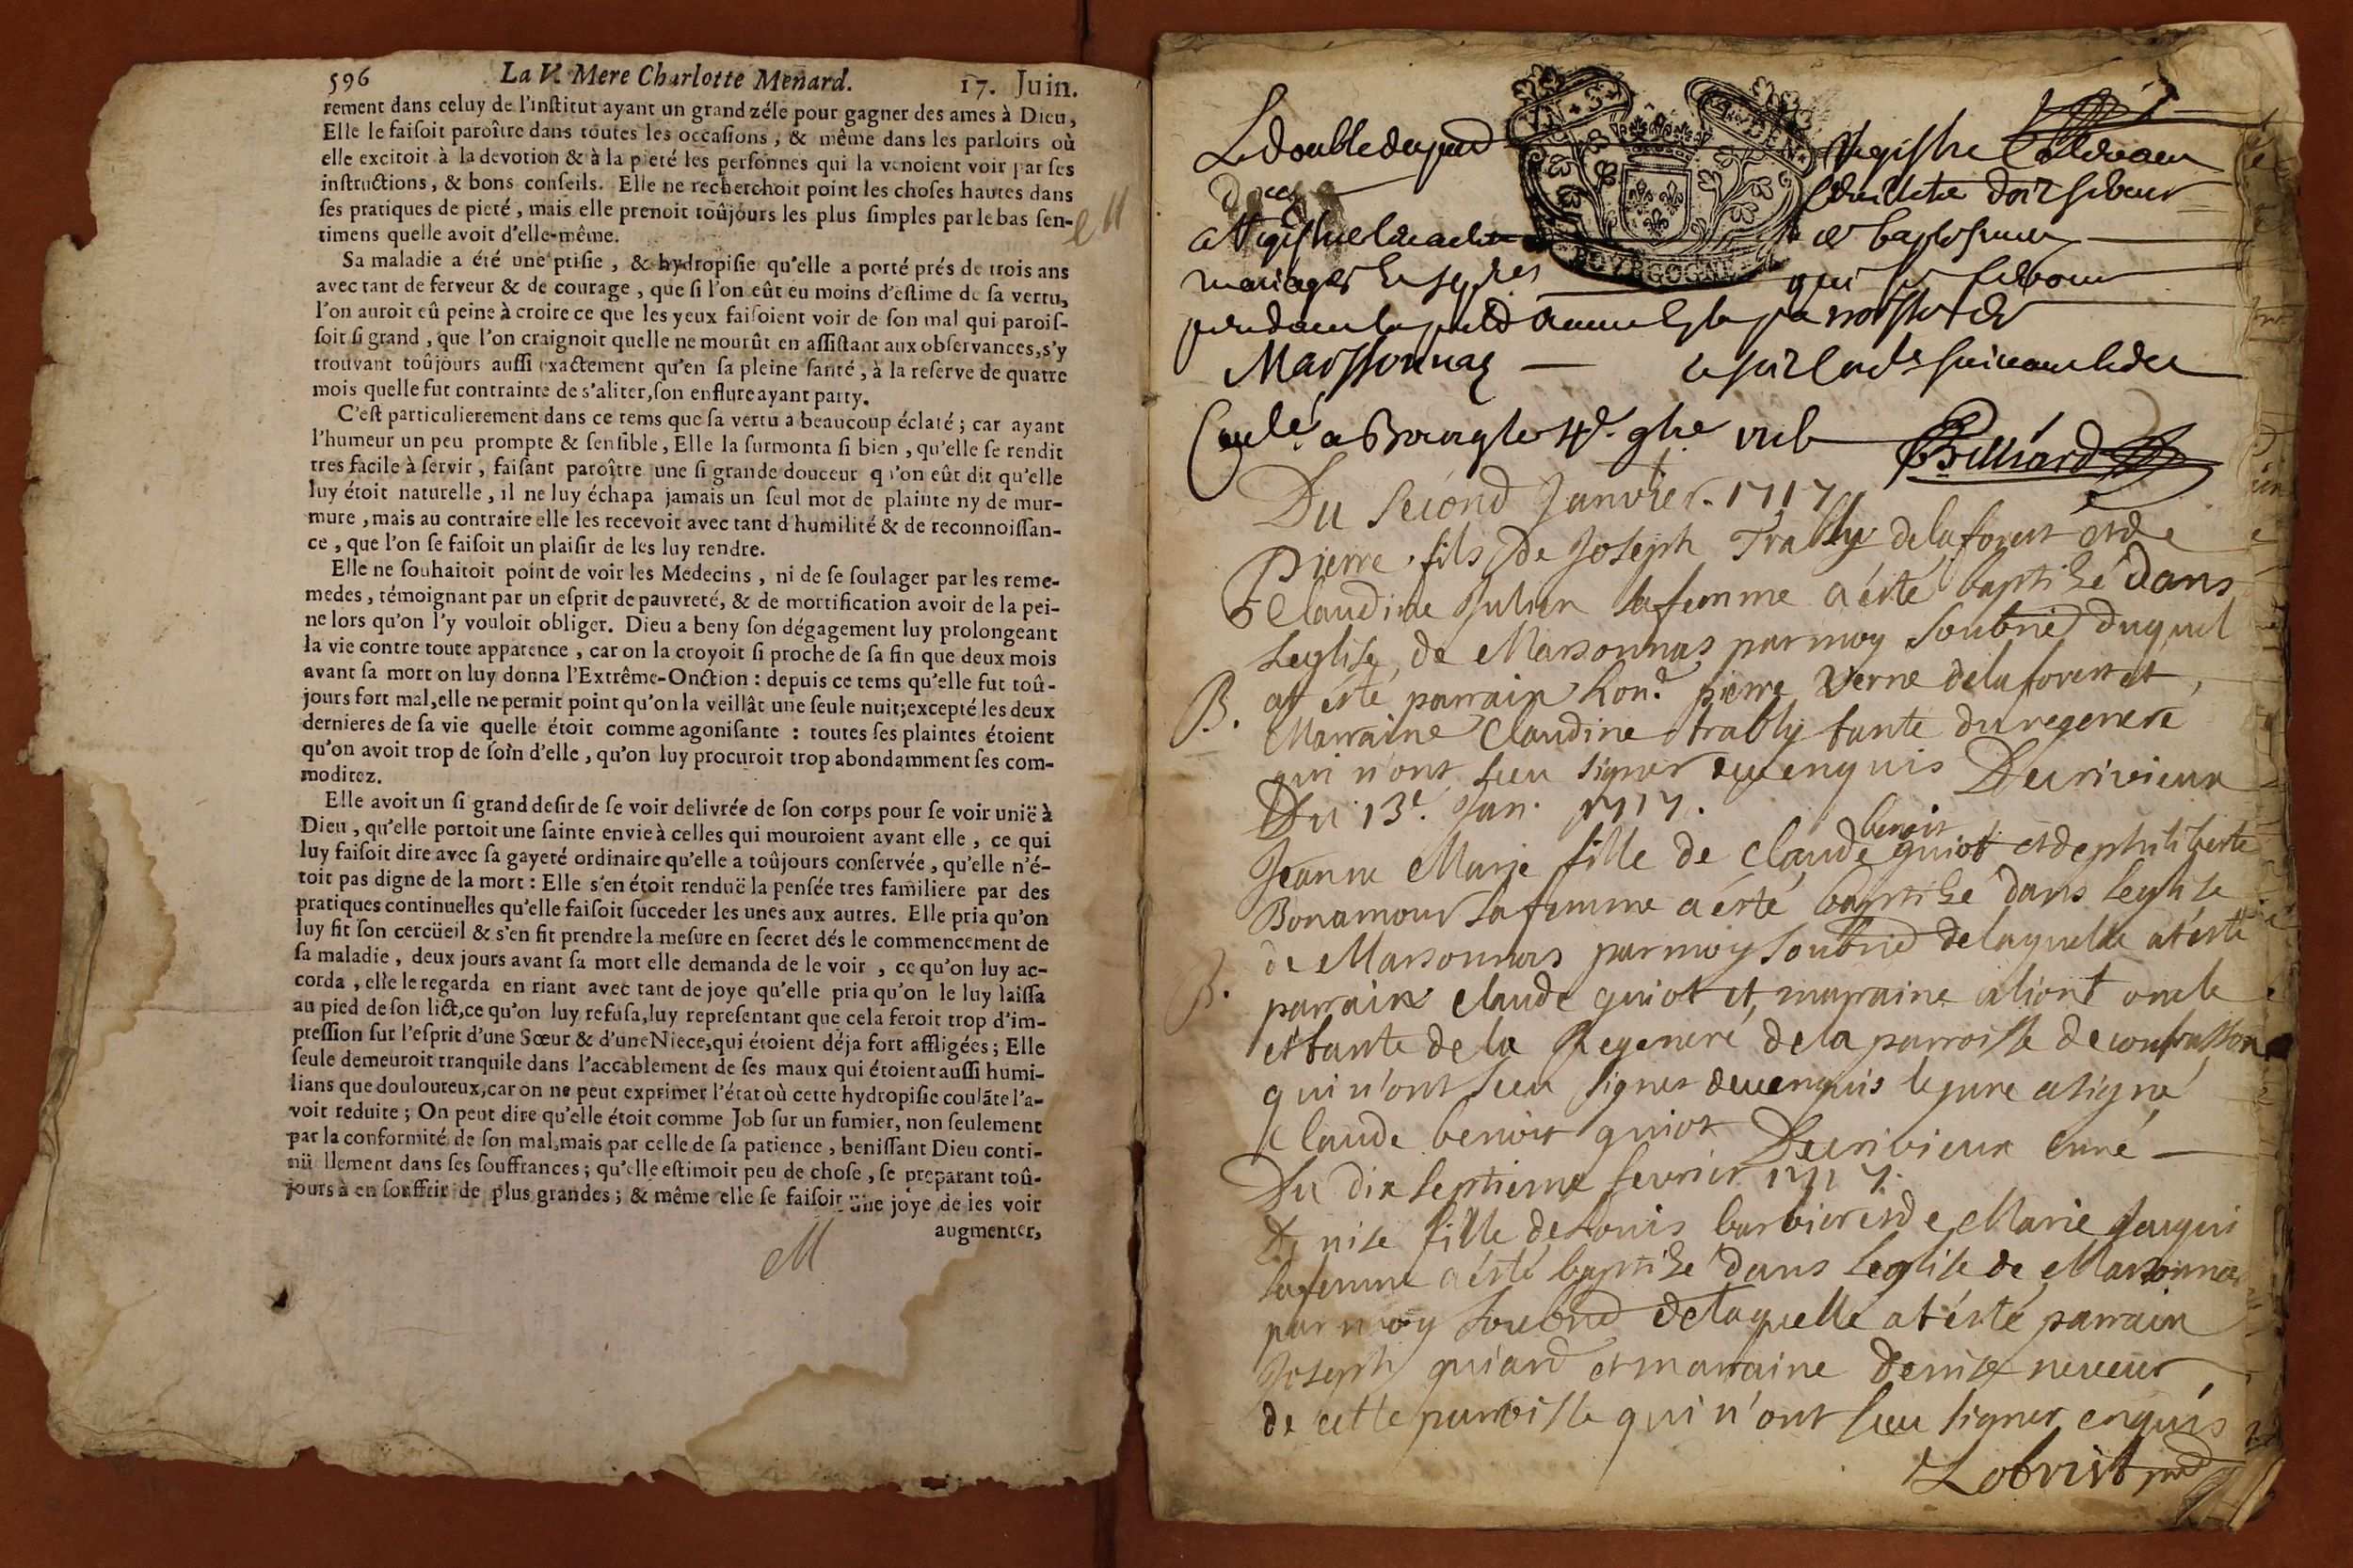 596 La V. Mere Charlotte Menard. 17. Juin.
rement dans celuy de l'inſtitut ayant un grand zéle pour gagner des ames à Dieu,
Elle le faiſoit paroître dans toutes les occaſions, & même dans les parloirs où
elle excitoit à la devotion & à la pieté les perſonnes qui la venoient voir par ſes
inſtructions, & bons conſeils. Elle ne recherchoit point les choſes hautes dans
ſes pratiques de pieté, mais elle prenoit toûjours les plus ſimples par le bas ſen-
timens quelle avoit d'elle-même.
Sa maladie a été une ptiſie, & hydropiſie qu'elle a porté prés de trois ans
avec tant de ferveur & de courage, que ſi l'on eût eu moins d'eſtime de ſa vertu,
l'on auroit eû peine à croire ce que les yeux faiſoient voir de ſon mal qui paroiſ-
ſoit ſi grand, que l'on craignoit quelle ne mourût en aſſiſtant aux obſervances, s'y
trouvant toûjours auſſi exactement qu'en ſa pleine ſanté, à la reſerve de quatre
mois quelle fut contrainte de s'aliter, ſon enflure ayant party.
C'eſt particulierement dans ce tems que ſa vertu a beaucoup éclaté; car ayant
l'humeur un peu prompte & ſenſible, Elle la ſurmonta ſi bien, qu'elle ſe rendit
tres facile à ſervir, faiſant paroître une ſi grande douceur q 'on eût dit qu'elle
luy étoit naturelle, il ne luy échapa jamais un ſeul mot de plainte ny de mur-
mure, mais au contraire elle les recevoit avec tant d'humilité & de reconnoiſſan-
ce, que l'on ſe faiſoit un plaiſir de les luy rendre.
Elle ne ſouhaitoit point de voir les Medecins, ni de ſe ſoulager par les reme-
medes, témoignant par un eſprit de pauvreté, & de mortification avoir de la pei-
ne lors qu'on l'y vouloit obliger. Dieu a beny ſon dégagement luy prolongeant
la vie contre toute apparence, car on la croyoit ſi proche de ſa fin que deux mois
avant ſa mort on luy donna l'Extrême-Onction: depuis ce tems qu'elle fut toû-
jours fort mal, elle ne permit point qu'on la veillât une ſeule nuit; excepté les deux
dernieres de ſa vie quelle étoit comme agoniſante: toutes ſes plaintes étoient
qu'on avoit trop de ſoin d'elle, qu'on luy procuroit trop abondamment ſes com-
moditez.
Elle avoit un ſi grand deſir de ſe voir delivrée de ſon corps pour ſe voir unië à
Dieu, qu'elle portoit une ſainte envie à celles qui mouroient avant elle, ce qui
luy faiſoit dire avec ſa gayeté ordinaire qu'elle a toûjours conſervée, qu'elle n'é-
toit pas digne de la mort: Elle s'en étoit renduë la penſée tres familiere par des
pratiques continuelles qu'elle faiſoit ſucceder les unes aux autres. Elle pria qu'on
luy fit ſon cercüeil & s'en fit prendre la meſure en ſecret dés le commencement de
ſa maladie, deux jours avant ſa mort elle demanda de le voir, ce qu'on luy ac-
corda, elle le regarda en riant avec tant de joye qu'elle pria qu'on le luy laiſſa
au pied de ſon lict, ce qu'on luy refuſa, luy repreſentant que cela feroit trop d'im-
preſſion ſur l'eſprit d'une Sœur & d'une Niece, qui étoient déja fort affligées; Elle
ſeule demeuroit tranquile dans l'accablement de ſes maux qui étoient auſſi humi-
lians que douloureux, car on ne peut exprimer l'état où cette hydropiſie coulãte l'a-
voit reduite; On peut dire qu'elle étoit comme Job ſur un fumier, non ſeulement
par la conformité de ſon mal, mais par celle de ſa patience, beniſſant Dieu conti-
nü llement dans ſes ſouffrances; qu'elle eſtimoit peu de choſe, ſe preparant toû-
jours à en ſouffrir de plus grandes; & même elle ſe faiſoit une joye de les voir
augmenter,
M
Le double du
Registre
es baptesmes
mariages
pendant la
Marssonnas
BOVRGOGNE
a Bourg le
Billiard
Du Second Janvier 1717
Pierre fils de Joseph Trably de la forest et de
Claudine Julien sa femme a esté baptisé dans
Leglise de Marsonnas par moy soubne duquel
B. at esté parrain hon. pierre Verne de la forest et
Marraine Claudine trably tante du regeneré
qui n'ont sceu signer enquis Derivieux
Du 13e. Jan. 1717.
Jeanne Marie fille de Claude benoit guiot et de philiberte
Bonamour sa femme a esté baptisé dans leglise
de Marsonnas par moy soubne de laquelle at esté
B. parrain Claude guiot et marraine oncle
et tante de la Regeneré de la parroisse de
qui n'ont sceu signer enquis le pere a signé
Claude benoit guiot Derivieux curé
Du dix septieme fevrier 1717.
Denise fille de Louis barbier et de Marie Jaqui
sa femme a esté baptisé dans Leglise de Marsonnas
par moy soubne de laquelle at esté parrain
Joseph guiard et marraine denise
de cette parroisse qui n'ont sceu signer enquis